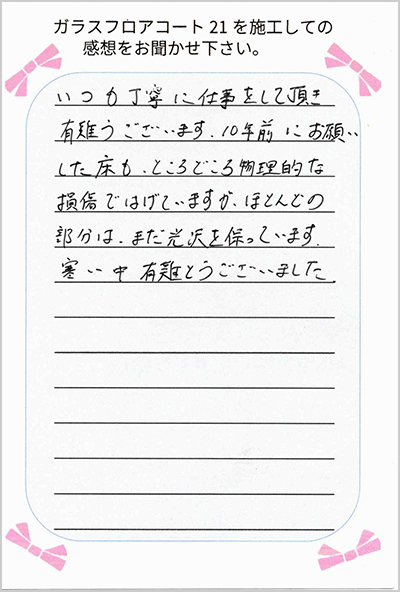 ガラスフロアコート 21 を施工しての
感想をお聞かせ下さい。
いつも丁寧に仕事をして頂き
有難うございます。10年前にお願い
した床も、ところどころ物理的な
損傷ではげていますが、ほとんどの
部分は、まだ光沢を保っています。
寒い中有難とうございました